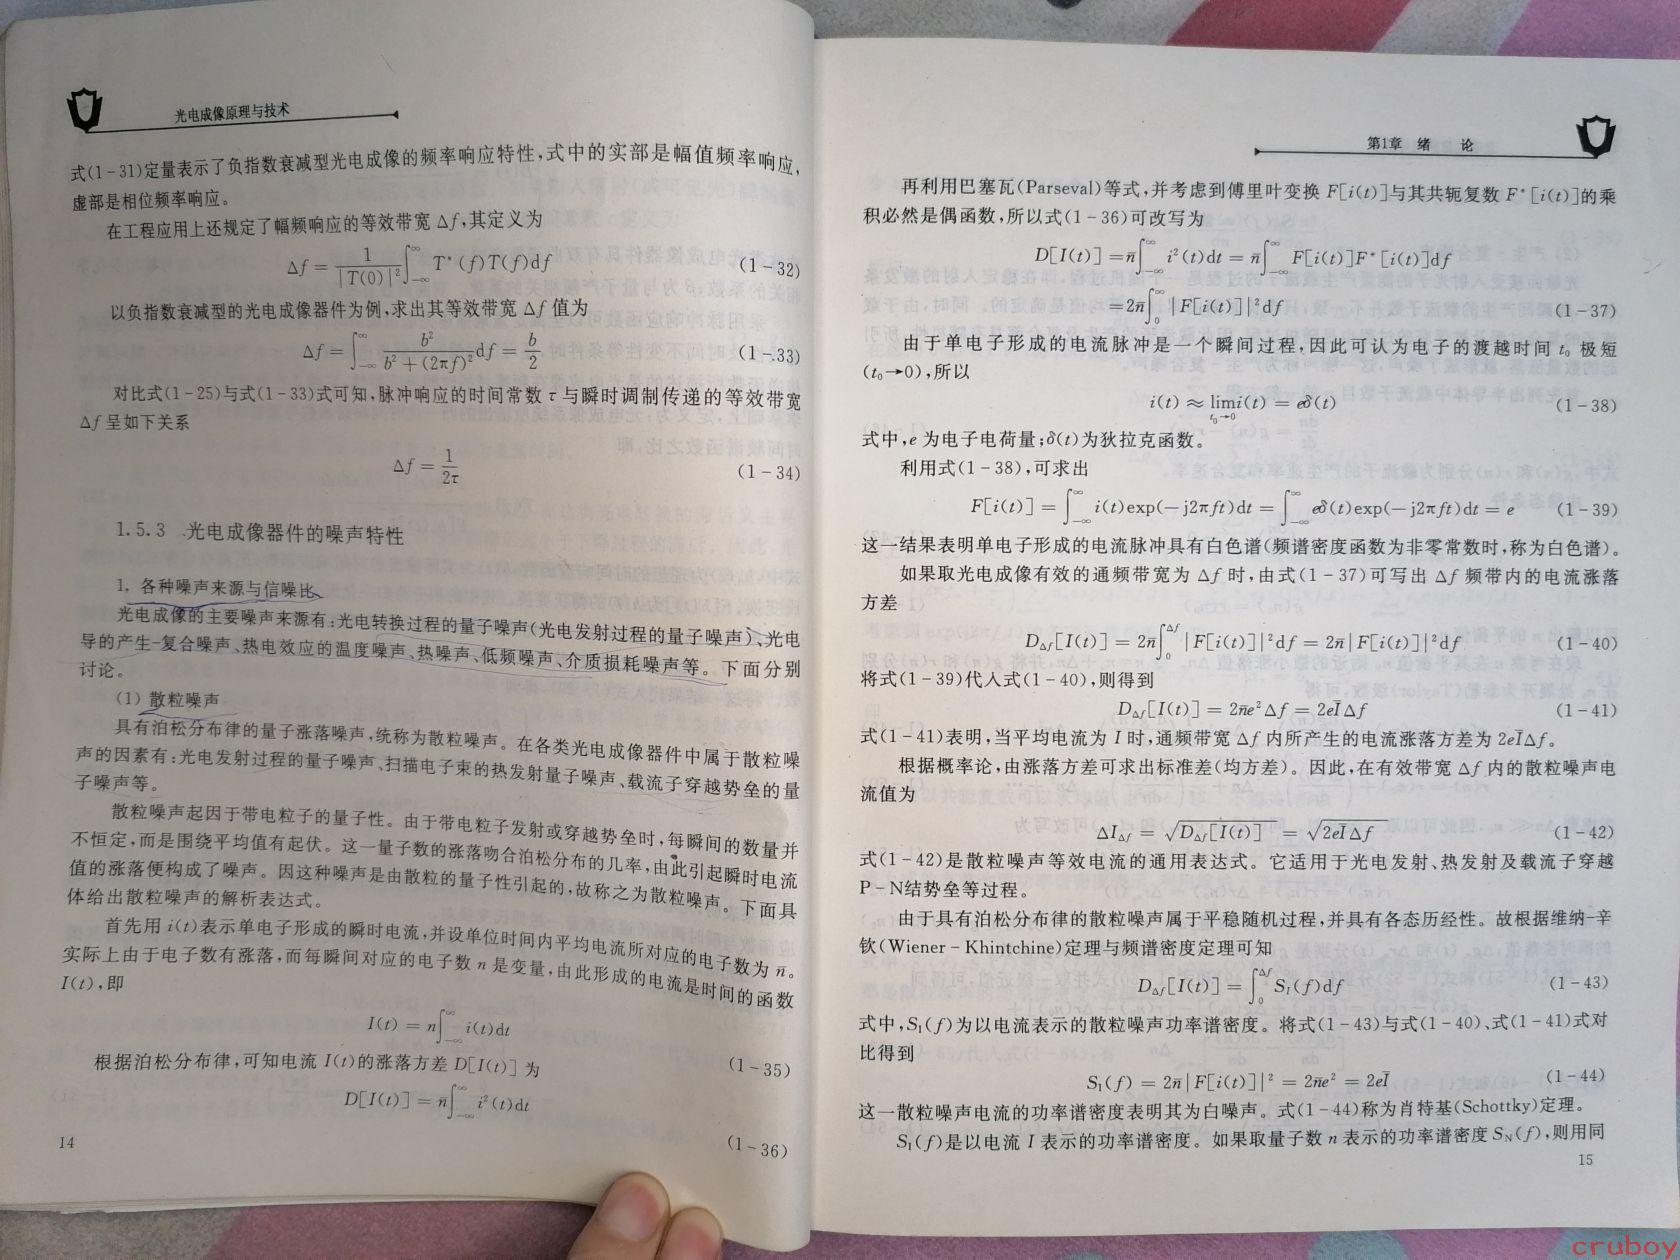 光电成像原理与技术
式(1-31)定量表示了负指数衰减型光电成像的频率响应特性,式中的实部是幅值频率响应,
虚部是相位频率响应。
在工程应用上还规定了幅频响应的等效带宽 Δf,其定义为
Δf = 1/|T(0)|² ∫_{-∞}^{∞} T*(f)T(f)df (1-32)
以负指数衰减型的光电成像器件为例,求出其等效带宽 Δf 值为
Δf = ∫_{-∞}^{∞} b²/(b²+(2πf)²) df = b/2 (1-33)
对比式(1-25)与式(1-33)式可知,脉冲响应的时间常数 τ 与瞬时调制传递的等效带宽
Δf 呈如下关系
Δf = 1/2τ (1-34)
1.5.3 光电成像器件的噪声特性
1. 各种噪声来源与信噪比
光电成像的主要噪声来源有:光电转换过程的量子噪声(光电发射过程的量子噪声)、光电
导的产生-复合噪声、热电效应的温度噪声、热噪声、低频噪声、介质损耗噪声等。下面分别
讨论。
(1) 散粒噪声
具有泊松分布律的量子涨落噪声,统称为散粒噪声。在各类光电成像器件中属于散粒噪
声的因素有:光电发射过程的量子噪声、扫描电子束的热发射量子噪声、载流子穿越势垒的量
子噪声等。
散粒噪声起因于带电粒子的量子性。由于带电粒子发射或穿越势垒时,每瞬间的数量并
不恒定,而是围绕平均值有起伏。这一量子数的涨落吻合泊松分布的几率,由此引起瞬时电流
值的涨落便构成了噪声。因这种噪声是由散粒的量子性引起的,故称之为散粒噪声。下面具
体给出散粒噪声的解析表达式。
首先用 i(t)表示单电子形成的瞬时电流,并设单位时间内平均电流所对应的电子数为 n̄。
实际上由于电子数有涨落,而每瞬间对应的电子数 n 是变量,由此形成的电流是时间的函数
I(t),即
I(t) = n∫_{-∞}^{∞} i(t)dt (1-35)
根据泊松分布律,可知电流 I(t)的涨落方差 D[I(t)] 为
D[I(t)] = n̄∫_{-∞}^{∞} i²(t)dt (1-36)
14
第1章 绪 论
再利用巴塞瓦(Parseval)等式,并考虑到傅里叶变换 F[i(t)]与其共轭复数 F*[i(t)]的乘
积必然是偶函数,所以式(1-36)可改写为
D[I(t)] = n̄∫_{-∞}^{∞} i²(t)dt = n̄∫_{-∞}^{∞} F[i(t)]F*[i(t)]df
= 2n̄∫_0^{∞} |F[i(t)]|²df (1-37)
由于单电子形成的电流脉冲是一个瞬间过程,因此可认为电子的渡越时间 t₀ 极短
(t₀→0),所以
i(t) ≈ lim_{t₀→0} i(t) = eδ(t) (1-38)
式中,e 为电子电荷量;δ(t)为狄拉克函数。
利用式(1-38),可求出
F[i(t)] = ∫_{-∞}^{∞} i(t)exp(-j2πft)dt = ∫_{-∞}^{∞} eδ(t)exp(-j2πft)dt = e (1-39)
这一结果表明单电子形成的电流脉冲具有白色谱(频谱密度函数为非零常数时,称为白色谱)。
如果取光电成像有效的通频带宽为 Δf 时,由式(1-37)可写出 Δf 频带内的电流涨落
方差
D_{Δf}[I(t)] = 2n̄∫_0^{Δf} |F[i(t)]|²df = 2n̄|F[i(t)]|²df (1-40)
将式(1-39)代入式(1-40),则得到
D_{Δf}[I(t)] = 2n̄e²Δf = 2eĪΔf (1-41)
式(1-41)表明,当平均电流为 I 时,通频带宽 Δf 内所产生的电流涨落方差为 2eĪΔf。
根据概率论,由涨落方差可求出标准差(均方差)。因此,在有效带宽 Δf 内的散粒噪声电
流值为
ΔI_{Δf} = √(D_{Δf}[I(t)]) = √(2eĪΔf) (1-42)
式(1-42)是散粒噪声等效电流的通用表达式。它适用于光电发射、热发射及载流子穿越
P-N结势垒等过程。
由于具有泊松分布律的散粒噪声属于平稳随机过程,并具有各态历经性。故根据维纳-辛
钦(Wiener-Khintchine)定理与频谱密度定理可知
D_{Δf}[I(t)] = ∫_0^{Δf} S_I(f)df (1-43)
式中,S_I(f)为以电流表示的散粒噪声功率谱密度。将式(1-43)与式(1-40)、式(1-41)式对
比得到
S_I(f) = 2n̄|F[i(t)]|² = 2n̄e² = 2eĪ (1-44)
这一散粒噪声电流的功率谱密度表明其为白噪声。式(1-44)称为肖特基(Schottky)定理。
S_I(f)是以电流 I 表示的功率谱密度。如果取量子数 n 表示的功率谱密度 S_N(f),则用同
15
cruboy